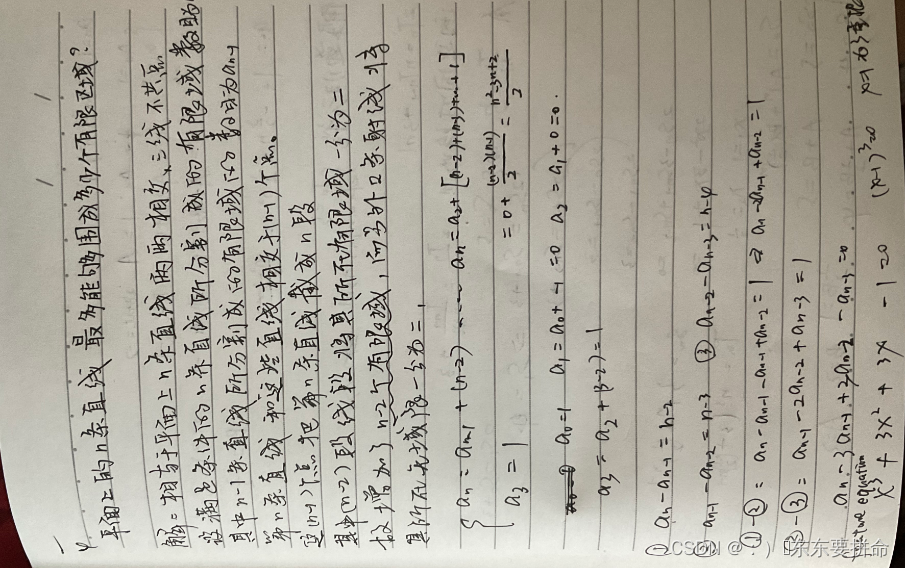 平面上的n条直线 最多能够围成多少个有限区域?
解:相当于平面上n条直线两两相交,三线不共点
设满足条件的n条直线所分割成的有限域数为an
其中n-1条直线所分割成的有限域的数目为an-1
第n条直线和这些直线相交于(n-1)个点。
这(n-1)个点把第n条直线截成n段
其中(n-2)段线段将其所在有限域一分为二
故增加了n-2个有限域,而另外2条射线将
其所在无限域一分为二,
an = an-1 + (n-2) an = a2 + [(n-2)+(n-3)+...+1]
a3 = 1
= 0 + (n-2)(n-1)/2 = n²-3n+2/2
a0-1 a1 = a0 + -1 = 0 a2 = a1 + 0 = 0.
a3 = a2 + (3-2) = 1
an - an-1 = n-2
② an-1 - an-2 = n-3 ③ an-2 - an-3 = n-4
①-② = an - an-1 - an-1 + an-2 = 1 ⇒ an - 2an-1 + an-2 = 1
②-③ = an-1 - 2an-2 + an-3 = 1
an - 3an-1 + 3an-2 - an-3 = 0
equation
x³ + 3x² + 3x - 1 = 0 (x-1)³=0 x=1
CSDN @:)东东要拼命